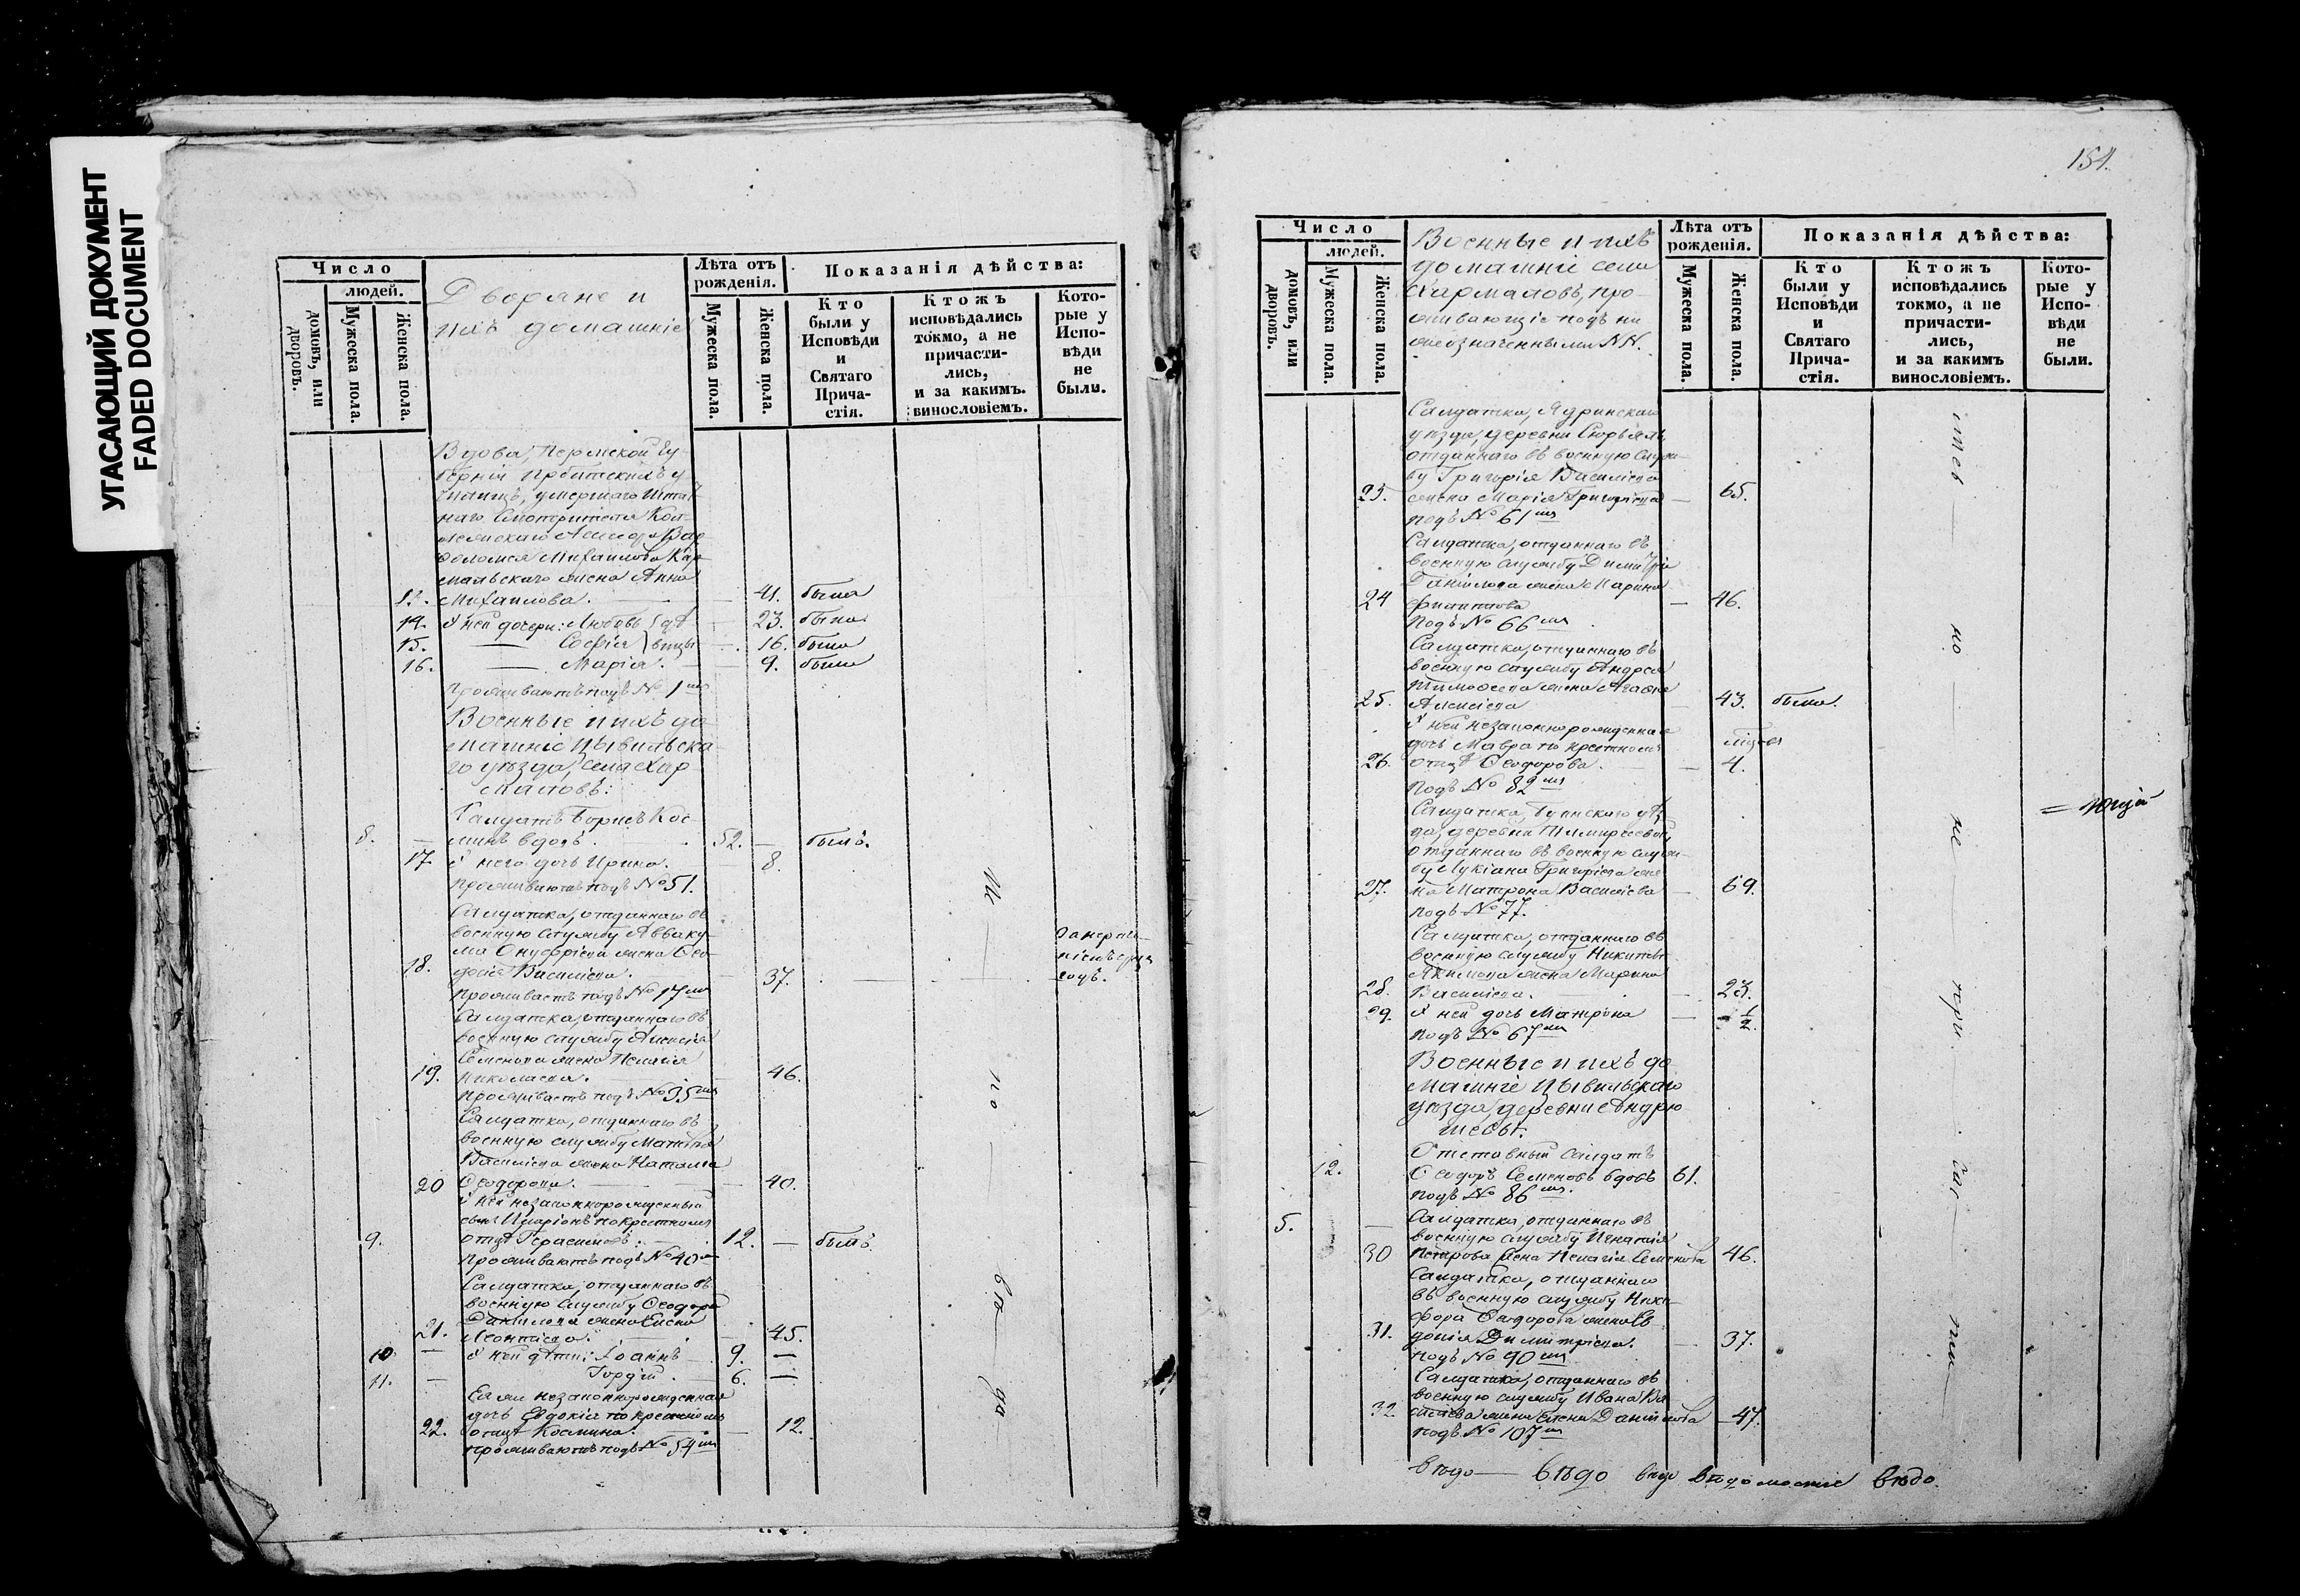 УГАСАЮЩИЙ ДОКУМЕНТ
FADED DOCUMENT
Число
людей.
домовъ, или дворовъ.
Мужеска пола.
Женска пола.
Дворяне и
ихъ домашніе
Лѣта отъ
рожденія.
Мужеска пола.
Женска пола.
Показанія дѣйства:
Кто
были у
Исповѣди
и
Святаго
Прича-
стія.
Ктожъ
исповѣдались
токмо, а не
причасти-
лись,
и за какимъ.
винословіемъ.
Кото-
рые у
Испо-
вѣди
не
были.
Вдова, Пермской гу-
берніи Ирбитскихъ у
чилищъ, умершаго Штат
наго Смотрителя Кол-
лежскаго
Михаилова
жена Анна
Михаилова. 41. была
14. У ней дочери: Любовь 23. была
15. Софія 16. была
16. Марія. 9. была
проживаютъ подъ № 1мъ
Военные и ихъ до
машніе Цывильска-
го уѣзда, села Хор
маловъ:
Салдатъ Борисъ Кос-
8. минъ вдовъ. 52. — былъ.
17. У него дочь Ирина. 8.
проживаютъ подъ № 51.
Салдатка, отданнаго въ
военную службу Авваку-
ма Онуфріева жена Ѳео-
18. досія Василіева. 37.
проживаетъ подъ № 17мъ
Салдатка, отданнаго въ
военную службу Алексія
Семенова жена Пелагія
19. Николаева. 46.
проживаетъ подъ № 35мъ
Салдатка, отданнаго въ
военную службу Матвѣя
Василіева жена Наталія
20 Ѳеодорова. 40.
У ней незаконнорожденный
сынъ Иларіонъ по крестному
9. отцу Герасимовъ. 12. — былъ.
проживаютъ подъ № 40мъ
Салдатка, отданнаго въ
военную службу Ѳеодора
Даніилова жена Елена
21. Леонтіева. 45.
10 — У ней дѣти: Іоаннъ 9. —
11. — Гордій 6. —
Ея же незаконнорожденная
дочь Евдокія по крестному
22. отцу Космина. 12.
проживаютъ подъ № 54мъ
154.
Число
людей.
домовъ, или дворовъ.
Мужеска пола.
Женска пола.
Военные и ихъ
домашніе села
Хормаловъ, про-
живающіе подъ ни
жеозначенными №№.
Лѣта отъ
рожденія.
Мужеска пола.
Женска пола.
Показанія дѣйства:
Кто
были у
Исповѣди
и
Святаго
Прича-
стія.
Ктожъ
исповѣдались
токмо, а не
причасти-
лись,
и за какимъ
винословіемъ.
Кото-
рые у
Испо-
вѣди
не
были.
Салдатка, Ядринскаго
уѣзда, деревни
отданнаго въ военную служ-
бу Григорія Василіева
23. жена Марія Григоріева — 65.
подъ № 61мъ
Салдатка, отданнаго въ
военную службу Димитрія
Даніилова жена Марина
24 Филиппова — 46.
подъ № 66мъ
Салдатка, отданнаго въ
военную службу Андрея
Тимоѳеева жена Агаѳія
25. Алексіева 43. была.
У ней незаконнорожденная
дочь Мавра по крестному
26. отцу Ѳеодорова. — 4.
подъ № 82мъ
Салдатка, Буинскаго уѣз
да, деревни
отданнаго въ военную служ-
бу Лукіана Григоріева же
27. на Матрона Василіева — 69.
подъ № 77.
Салдатка, отданнаго въ
военную службу Никиты
Акимова жена Марина
28. Василіева. — 23.
29. У ней дочь Матрона — 1/2
подъ № 67мъ
Военные и ихъ до
машніе Цывильскаго
уѣзда, деревни Андрю
шевы.
Отставный салдатъ
12. Ѳеодоръ Семеновъ вдовъ 61.
подъ № 86мъ.
5. — Салдатка, отданнаго въ
военную службу Игнатія
30 Петрова жена Пелагія Семенова 46.
Салдатка, отданнаго
въ военную службу Ники-
фора Ѳеодорова жена Ев
31. докія Димитріева. — 37.
подъ № 90мъ
Салдатка, отданнаго въ
военную службу Ивана Ва
32. силіева жена Елена Даніилова 47.
подъ № 107мъ
вѣдо — вѣдо вѣдо вѣдомостіе вѣдо.